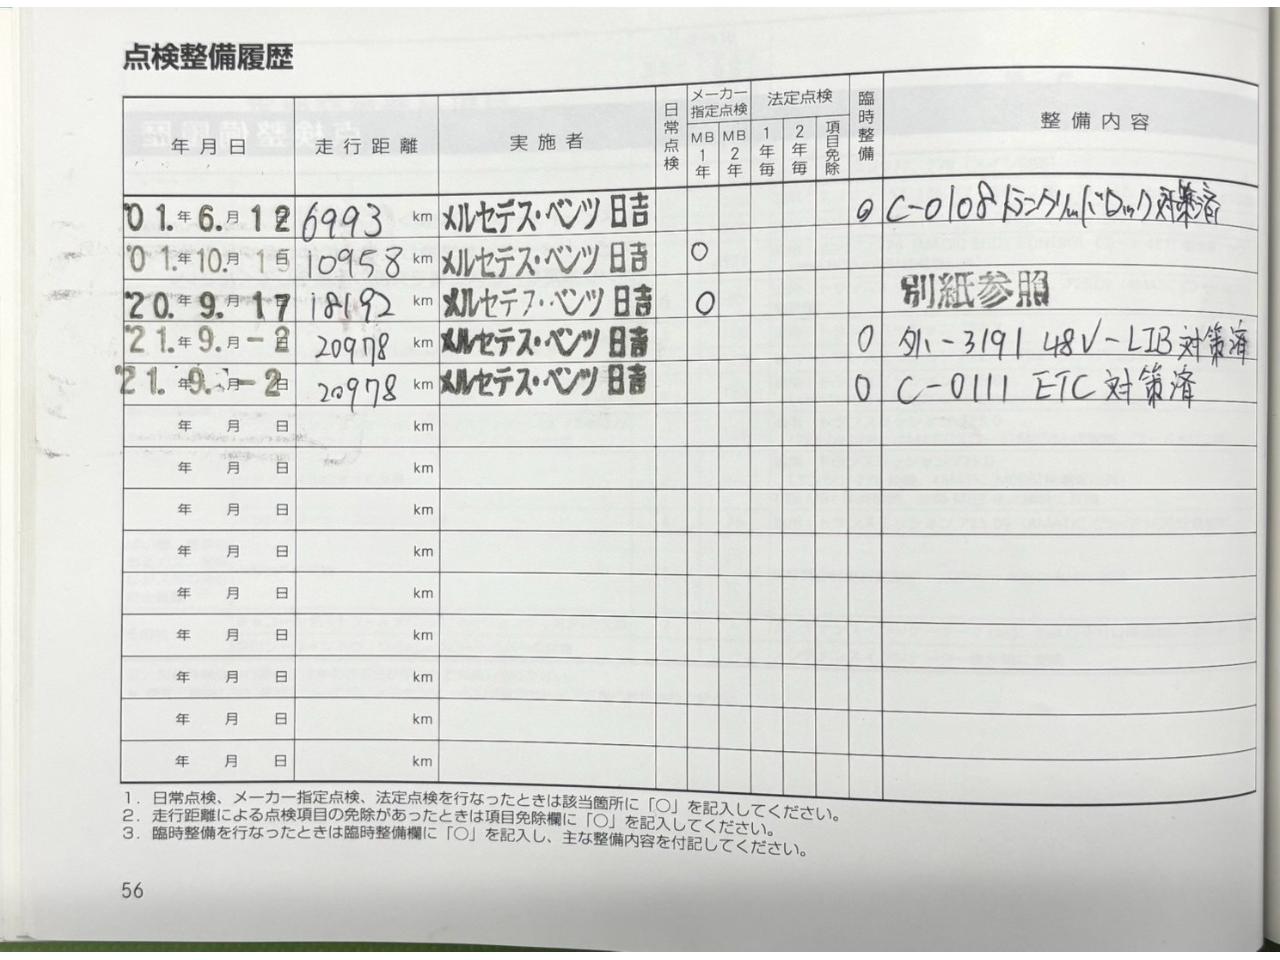 点検整備履歴
年月日 走行距離 実施者 日常点検 メーカー指定点検 MB1年 MB2年 法定点検 1年毎 2年毎 項目免除 臨時整備 整備内容
'01.年6.月12日 6993 km メルセデス・ベンツ 日吉 ○ C-0108 トランクリッドロック対策済
'01.年10.月15日 10958 km メルセデス・ベンツ 日吉 ○
'20.年9.月17日 18192 km メルセデス・ベンツ 日吉 ○ 別紙参照
'21.年9.月-2日 20978 km メルセデス・ベンツ 日吉 ○ 外-3191 48V-LIB対策済
'21.年9.月-2日 20978 km メルセデス・ベンツ 日吉 ○ C-0111 ETC対策済
年 月 日 km
年 月 日 km
年 月 日 km
年 月 日 km
年 月 日 km
年 月 日 km
年 月 日 km
年 月 日 km
年 月 日 km
1. 日常点検、メーカー指定点検、法定点検を行なったときは該当箇所に「○」を記入してください。
2. 走行距離による点検項目の免除があったときは項目免除欄に「○」を記入してください。
3. 臨時整備を行なったときは臨時整備欄に「○」を記入し、主な整備内容を付記してください。
56